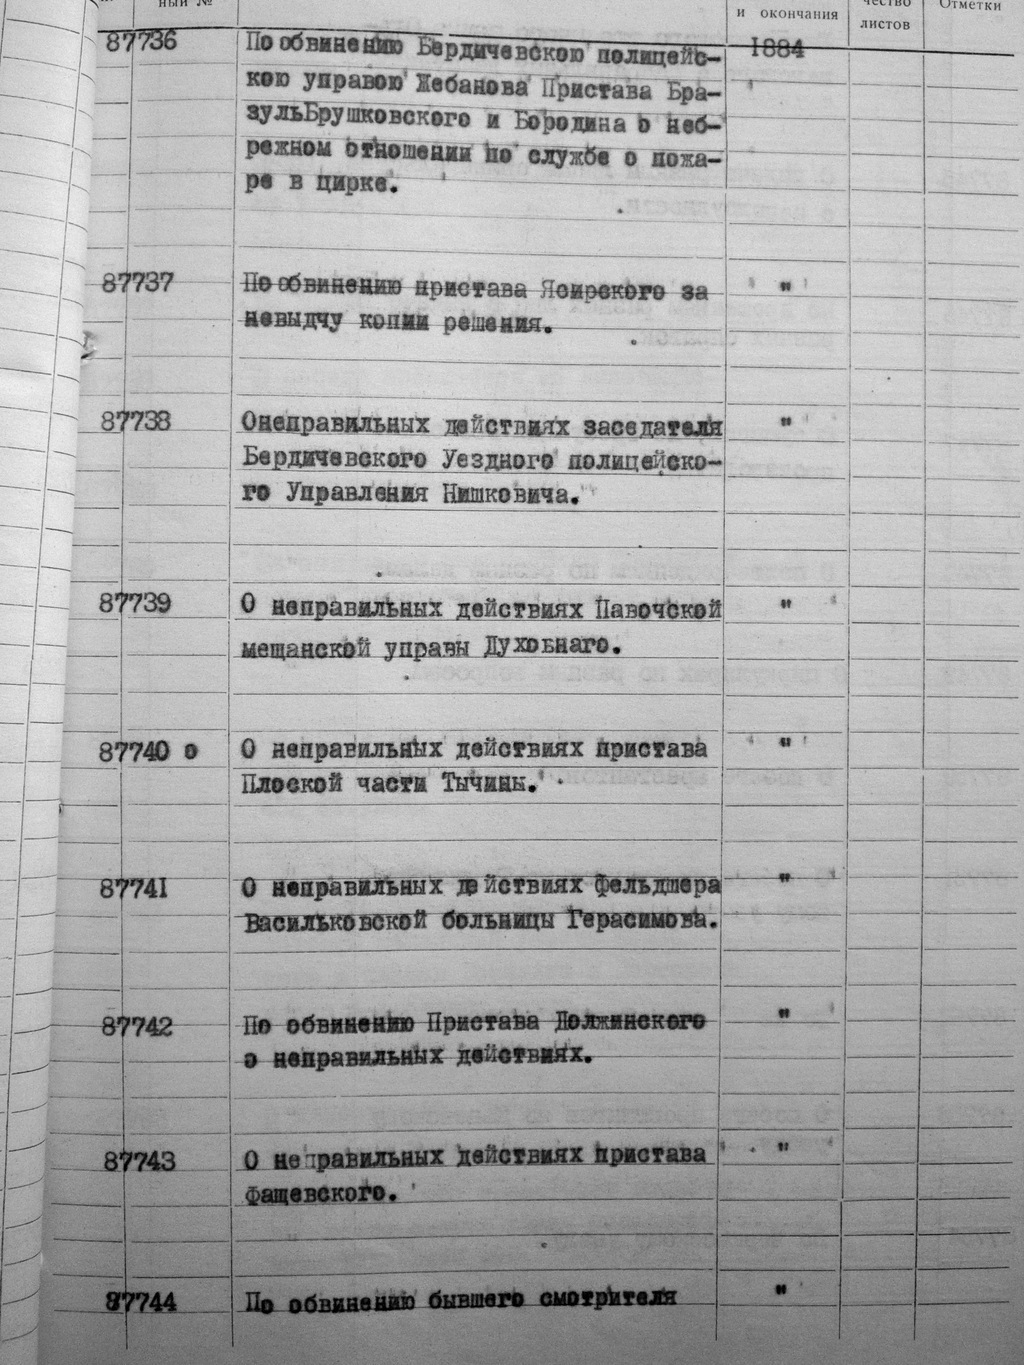 ный №
и окончания
чество
листов
Отметки
87736 По обвинению Бердичевскою полицейс- 1884
кою управою Жебанова Пристава Бра-
зульБрушковского и Бородина о неб-
режном отношении по службе о пожа-
ре в цирке.
87737 По обвинению пристава Ясирского за "
невыдчу копии решения.
87738 Онеправильных действиях заседателя "
Бердичевского Уездного полицейско-
го Управления Нишковича."
87739 О неправильных действиях Павочской "
мещанской управы Духовнаго.
87740 о О неправильных действиях пристава "
Плоской части Тычины.
87741 О неправильных действиях фельдшера "
Васильковской больницы Герасимова.
87742 По обвинению Пристава Должинского "
о неправильных действиях.
87743 О неправильных действиях пристава "
Фащевского.
87744 По обвинению бывшего смотрителя "